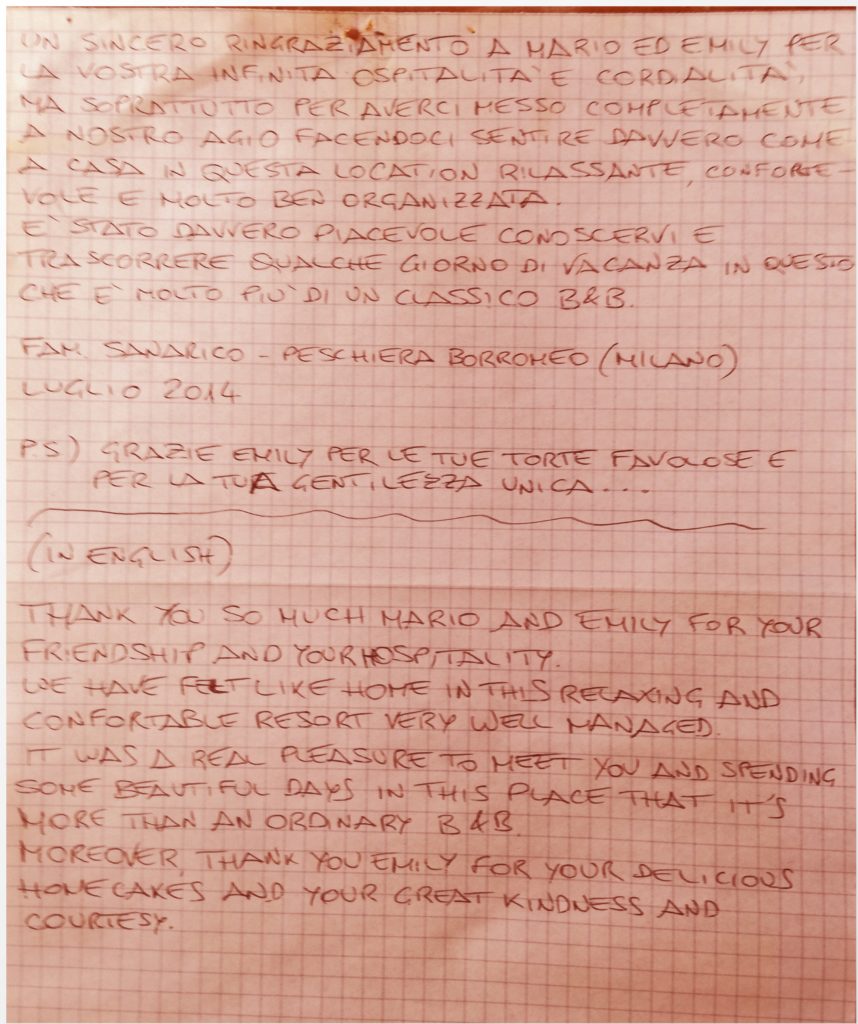 UN SINCERO RINGRAZIAMENTO A MARIO ED EMILY PER
LA VOSTRA INFINITA OSPITALITA' E CORDIALITA',
MA SOPRATTUTTO PER AVERCI MESSO COMPLETAMENTE
A NOSTRO AGIO FACENDOCI SENTIRE DAVVERO COME
A CASA IN QUESTA LOCATION RILASSANTE, CONFORTE-
VOLE E MOLTO BEN ORGANIZZATA.
E' STATO DAVVERO PIACEVOLE CONOSCERVI E
TRASCORRERE QUALCHE GIORNO DI VACANZA IN QUESTO
CHE E' MOLTO PIU' DI UN CLASSICO B&B.
FAM. SANARICO - PESCHIERA BORROMEO (MILANO)
LUGLIO 2014
PS) GRAZIE EMILY PER LE TUE TORTE FAVOLOSE E
PER LA TUA GENTILEZZA UNICA...
(IN ENGLISH)
THANK YOU SO MUCH MARIO AND EMILY FOR YOUR
FRIENDSHIP AND YOUR HOSPITALITY.
WE HAVE FELT LIKE HOME IN THIS RELAXING AND
CONFORTABLE RESORT VERY WELL MANAGED.
IT WAS A REAL PLEASURE TO MEET YOU AND SPENDING
SOME BEAUTIFUL DAYS IN THIS PLACE THAT IT'S
MORE THAN AN ORDINARY B&B.
MOREOVER, THANK YOU EMILY FOR YOUR DELICIOUS
HOMECAKES AND YOUR GREAT KINDNESS AND
COURTESY.